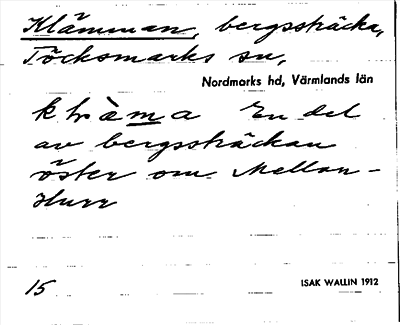 Klämman, bergssträcka,
Töcksmarks sn,
Nordmarks hd, Värmlands län
En del
av bergssträckan
öster om Mellan-
Hurr
15
ISAK WALLIN 1912